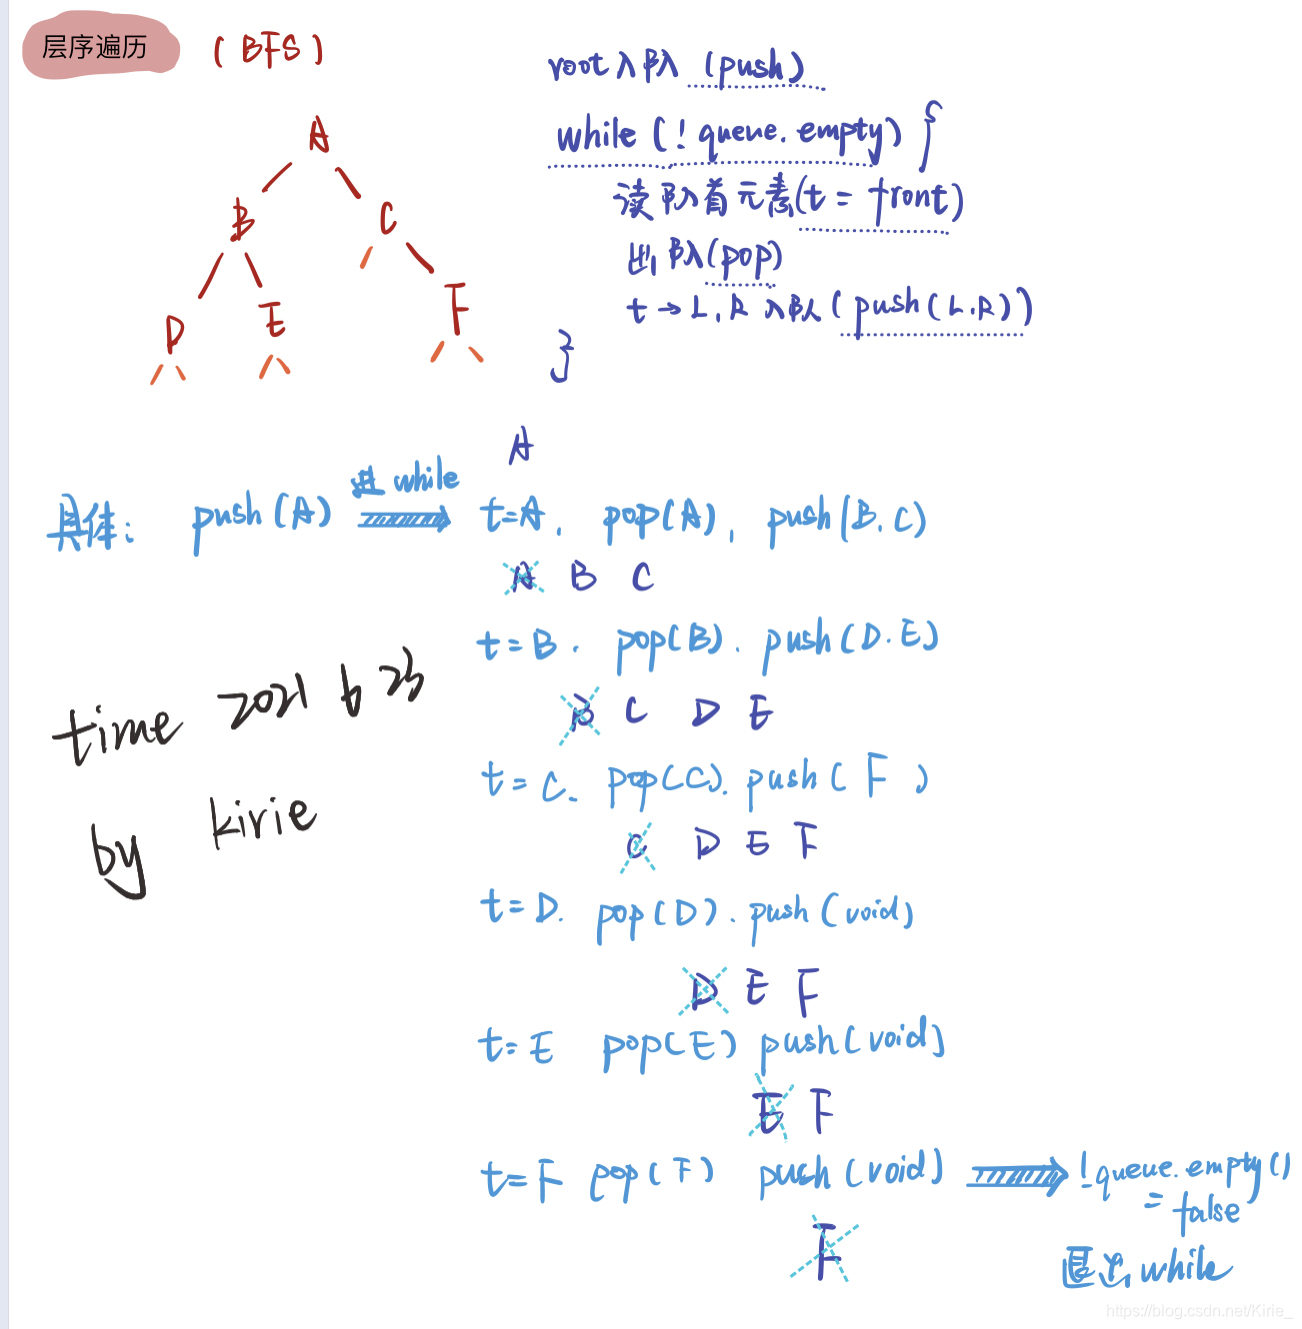 层序遍历 (BFS)
root入队 (push)
while (! queue.empty) {
读队首元素(t = front)
出队(pop)
t → L, R 入队 (push(L.R))
}
A
B C
D E F
A
具体: push(A) 进while t=A, pop(A), push(B.C)
A B C
t=B. pop(B). push(D.E)
B C D E
t=C. pop(C). push( F )
C D E F
t=D. pop(D). push(void)
D E F
t=E pop(E) push(void)
E F
t=F pop(F) push(void) !queue.empty()
= false
F
退出while
time 2021 6 23
by kirie
https://blog.csdn.net/Kirie_